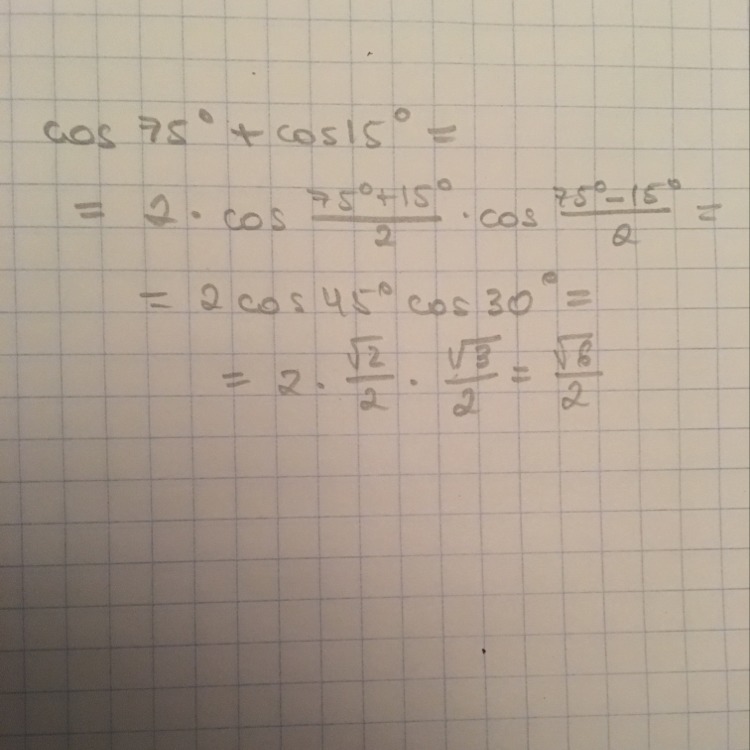 cos 75° + cos15° =
= 2 · cos (75°+15°)/2 · cos (75°-15°)/2 =
= 2 cos 45° cos 30° =
= 2 · √2/2 · √3/2 = √6/2